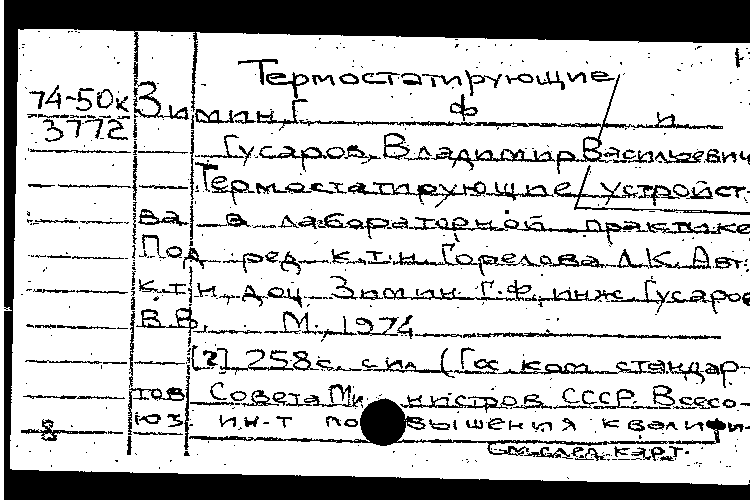 Термостатирующие
74-50к Зимин, Г Ф и
3772
Гусаров, Владимир Васильевич
Термостатирующие устройст-
ва в лабораторной практике
Под ред. к.т.н. Горелова Л.К. Авт.
к.т.н, доц Зимин Г.Ф., инж. Гусаров
В.В. М., 1974
[2], 258с. с ил (Гос ком стандар-
тов Совета Министров СССР. Всесо-
юз. ин-т повышения квалифи-
8
См. след. карт.